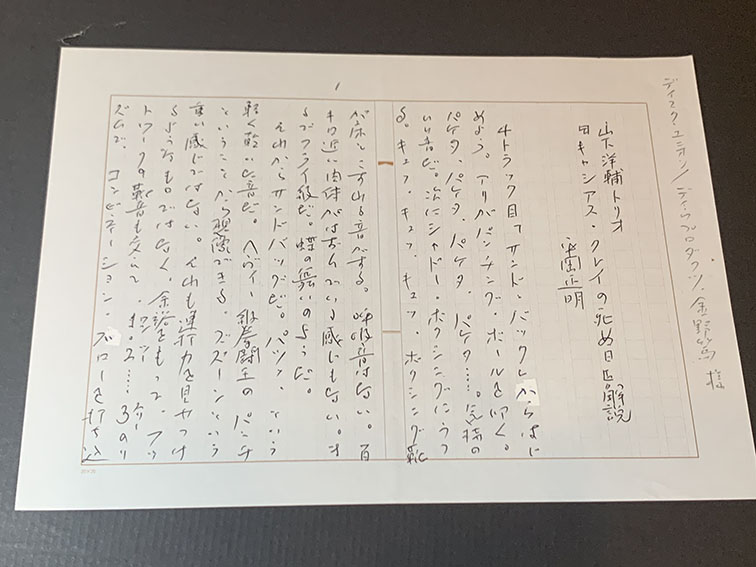 ディスクユニオン/ディウプロダクツ・金野篤 様
山下洋輔トリオ
『キャシアス・クレイの死ぬ日』解説
平岡正明
4トラック目「サンド・バック」からはじ
めよう。アリはパンチング・ボールを叩く。
パケタ、パケタ、パケタ、パケタ……。気持の
いい音だ。次にシャドー・ボクシングにうつ
る。キュッ、キュッ、キュッ、ボクシング靴
が床にこすれる音がする。呼吸音はない。百
キロ近い肉体がはずんでいる感じもない。ま
るでフライ級だ。蝶の舞いのようだ。
それからサンドバックだ。パンッ、という
軽く乾いた音だ。ヘヴィー級拳闘王のパンチ
ということから想像できる。ズズーンという
重い感じではない。それも運動力を見せつけ
るようなものではなく、余裕をもって、フッ
トワークの靴音も交えて、1・2……3のリ
ズムで、コンビネーション・ブローを打ち込
1
20×20